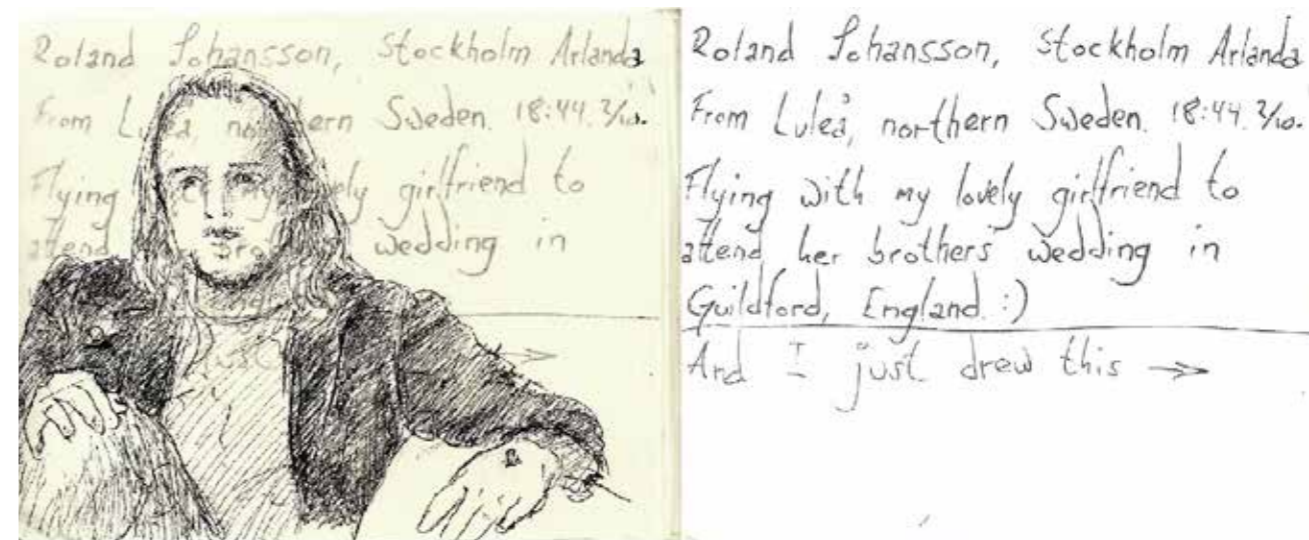 Roland Johansson, Stockholm Arlanda
From Luleå, northern Sweden. 18:44. 2/10.
Flying my lovely girlfriend to
attend brothers wedding in
just →
Roland Johansson, Stockholm Arlanda
From Luleå, northern Sweden. 18:44. 2/10.
Flying with my lovely girlfriend to
attend her brothers wedding in
Guildford, England. :)
And I just drew this →